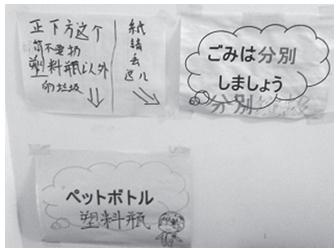 正下方这个
筒不要扔
塑料瓶以外
的垃圾
紙
请丢
这儿
ごみは分別
しましょう
分别
ペットボトル
塑料瓶